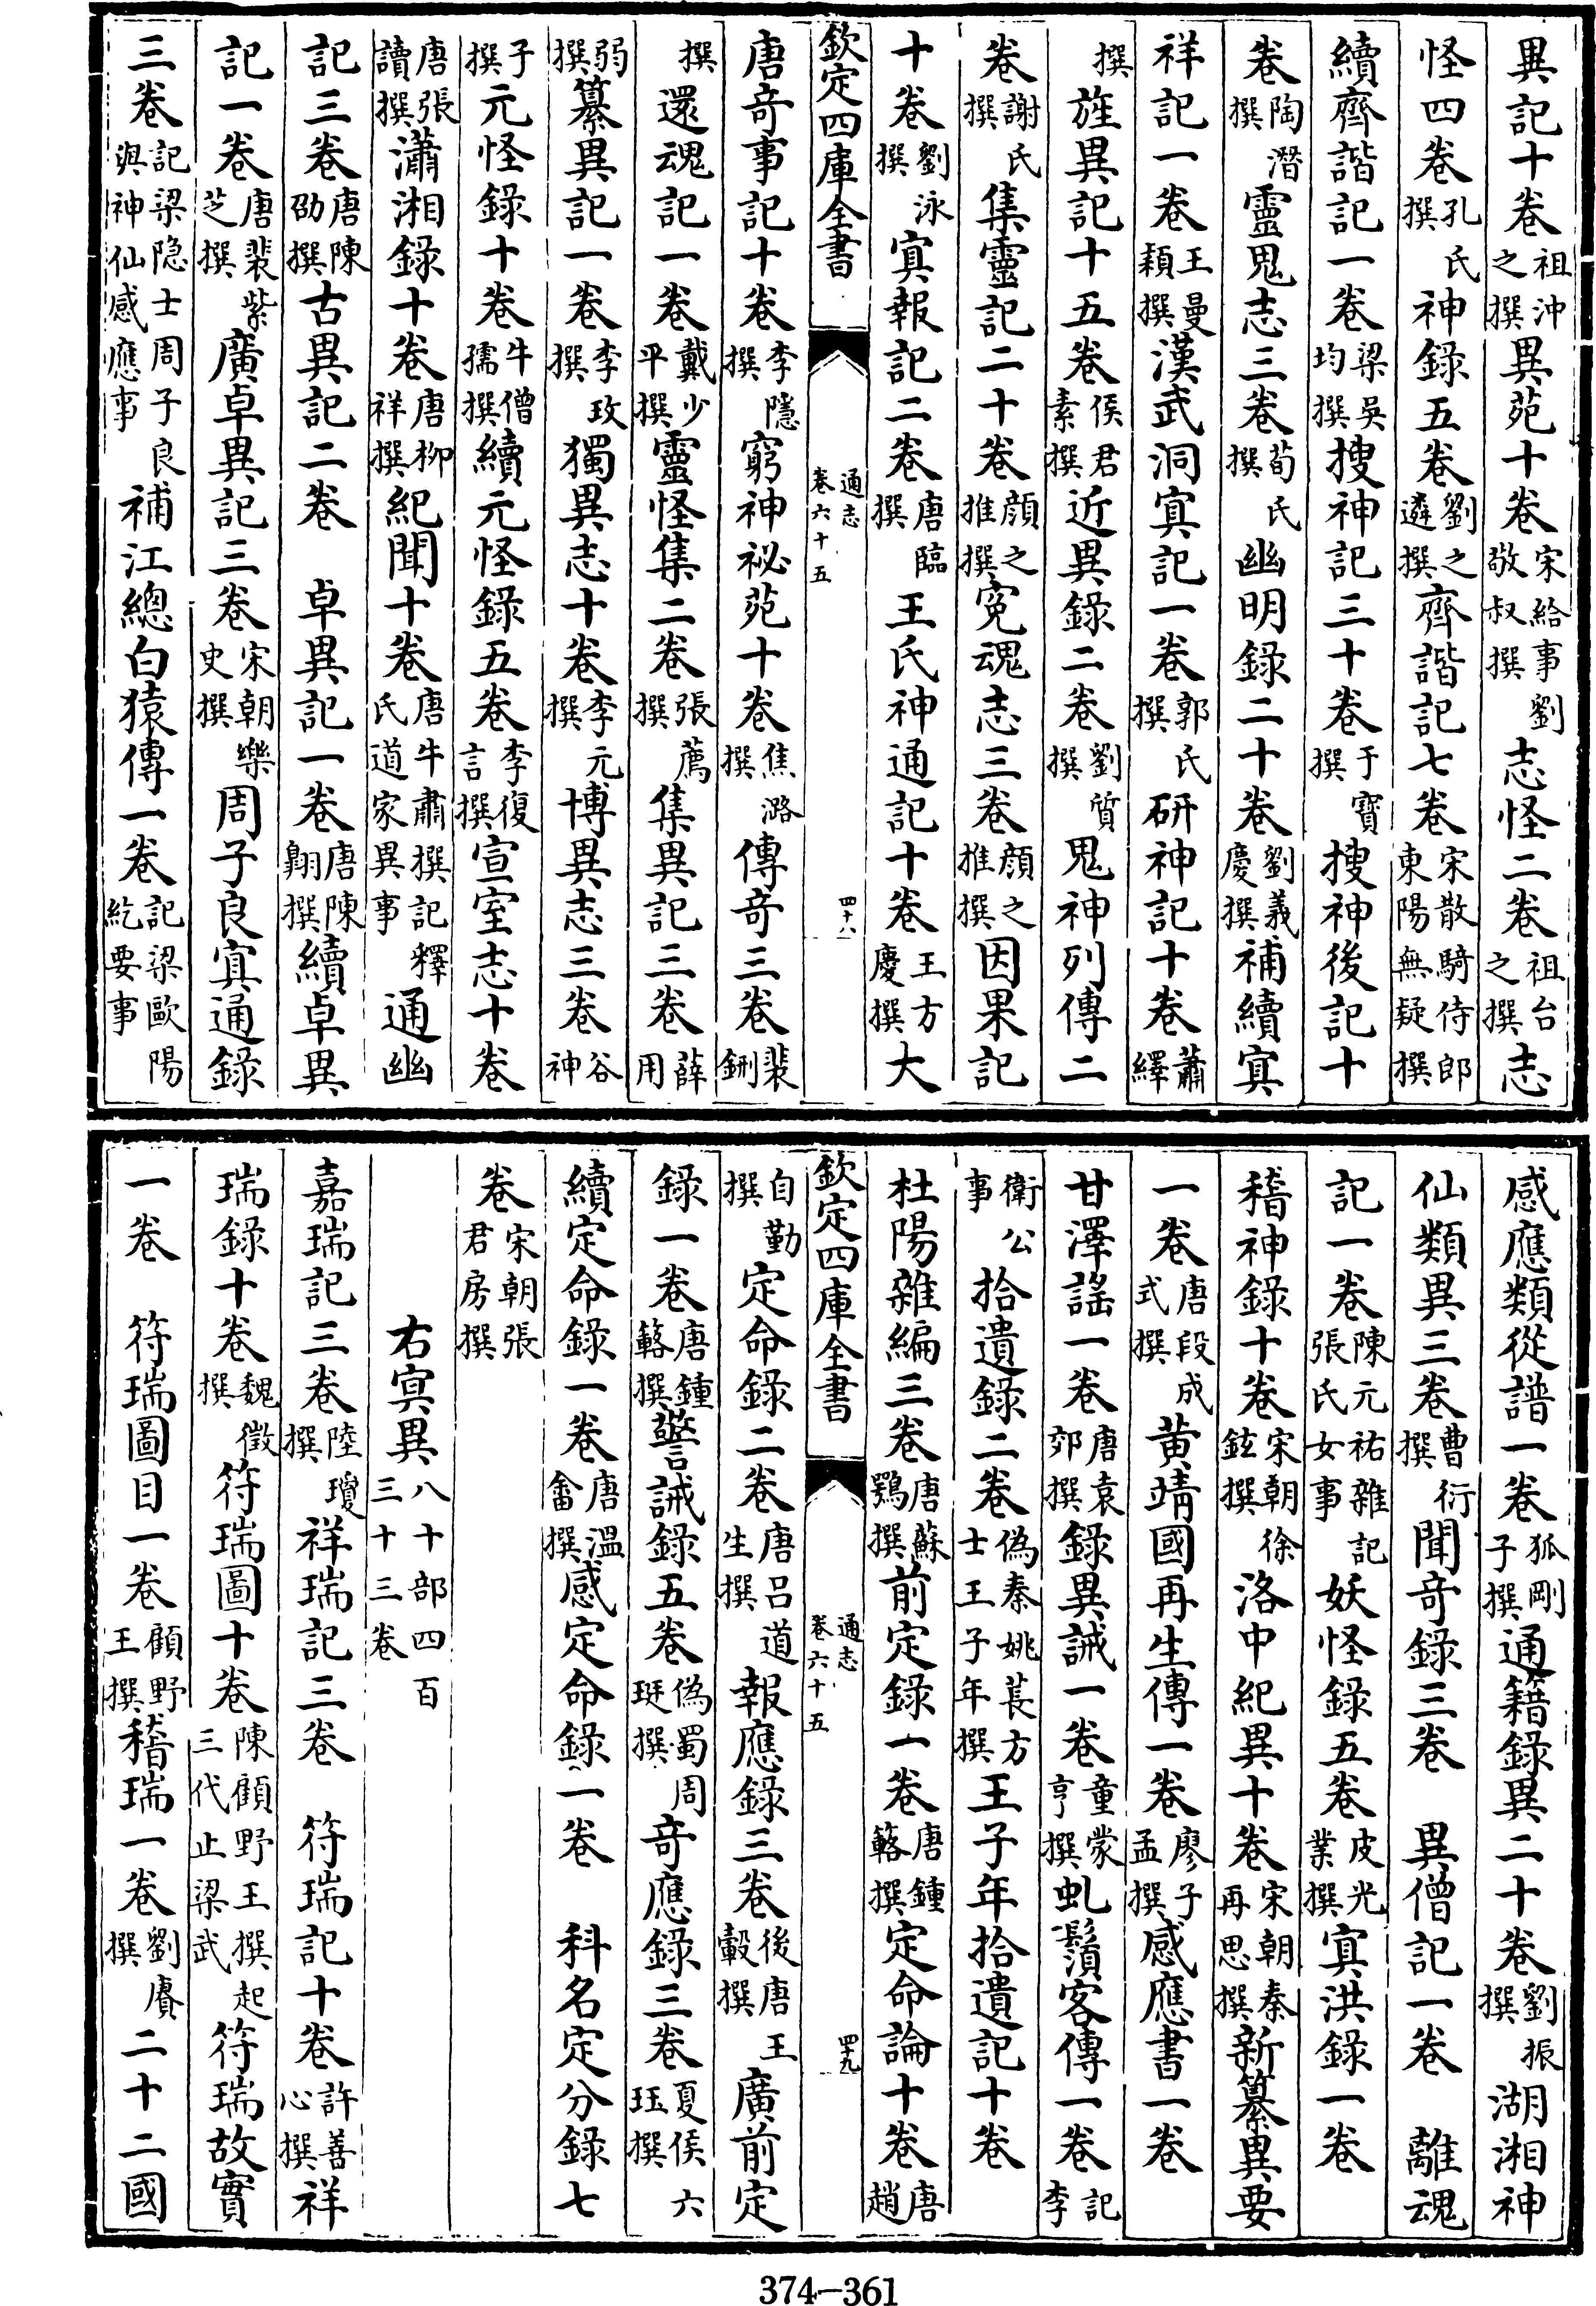 異記十卷祖沖之撰異苑十卷宋給事劉敬叔撰志怪二卷祖台之撰志
怪四卷孔氏撰神錄五卷劉之遴撰齊諧記七卷宋散騎侍郎東陽無疑撰
續齊諧記一卷梁吳均撰搜神記三十卷于寶撰搜神後記十
卷陶潛撰靈鬼志三卷荀氏撰幽明錄二十卷劉義慶撰補續冥
祥記一卷王曼穎撰漢武洞冥記一卷郭氏撰研神記十卷蕭繹
撰旌異記十五卷侯君素撰近異錄二卷劉質撰鬼神列傳二
卷謝氏撰集靈記二十卷顔之推撰寃魂志三卷顔之推撰因果記
十卷劉泳撰冥報記二卷唐臨撰王氏神通記十卷王方慶撰大
欽定四庫全書 通志卷六十五 四十八
唐奇事記十卷李隱撰窮神祕苑十卷焦潞撰傳奇三卷裴鉶
撰還魂記一卷戴少平撰靈怪集二卷張薦撰集異記三卷薛用
弱撰纂異記一卷李玫撰獨異志十卷李元撰博異志三卷谷神
子撰元怪錄十卷牛僧孺撰續元怪錄五卷李復言撰宣室志十卷
唐張讀撰瀟湘錄十卷唐柳祥撰紀聞十卷唐牛肅撰記釋氏道家異事通幽
記三卷唐陳劭撰古異記二卷 卓異記一卷唐陳翺撰續卓異
記一卷唐裴紫芝撰廣卓異記三卷宋朝樂史撰周子良冥通錄
三卷記梁隐士周子良與神仙感應事補江總白猿傳一卷記梁歐陽紇要事
感應類從譜一卷狐剛子撰通籍錄異二十卷劉振撰湖湘神
仙類異三卷曹衍撰聞奇錄三卷 異僧記一卷 離魂
記一卷陳元祐雜記張氏女事妖怪錄五卷皮光業撰冥洪錄一卷
稽神錄十卷宋朝徐鉉撰洛中紀異十卷宋朝秦再思撰新纂異要
一卷唐段成式撰黃靖國再生傳一卷廖子孟撰感應書一卷
甘澤謠一卷唐袁郊撰錄異誡一卷童蒙亨撰虬鬚客傳一卷記李
衛公事拾遺錄二卷偽秦姚萇方士王子年撰王子年拾遺記十卷
杜陽雜編三卷唐蘇鶚撰前定錄一卷唐鍾簵撰定命論十卷唐趙
欽定四庫全書 通志卷六十五 四十九
自勤撰定命錄二卷唐吕道生撰報應錄三卷後唐王轂撰廣前定
錄一卷唐鍾簵撰警誡錄五卷偽蜀周珽撰奇應錄三卷夏侯六珏撰
續定命錄一卷唐溫畬撰感定命錄一卷 科名定分錄七
卷宋朝張君房撰
右冥異八十部四百三十三卷
嘉瑞記三卷陸瓊撰祥瑞記三卷 符瑞記十卷許善心撰祥
瑞錄十卷魏徵撰符瑞圖十卷陳顧野王撰起三代止梁武符瑞故實
一卷 符瑞圖目一卷顧野王撰稽瑞一卷劉賡撰二十二國
374-361